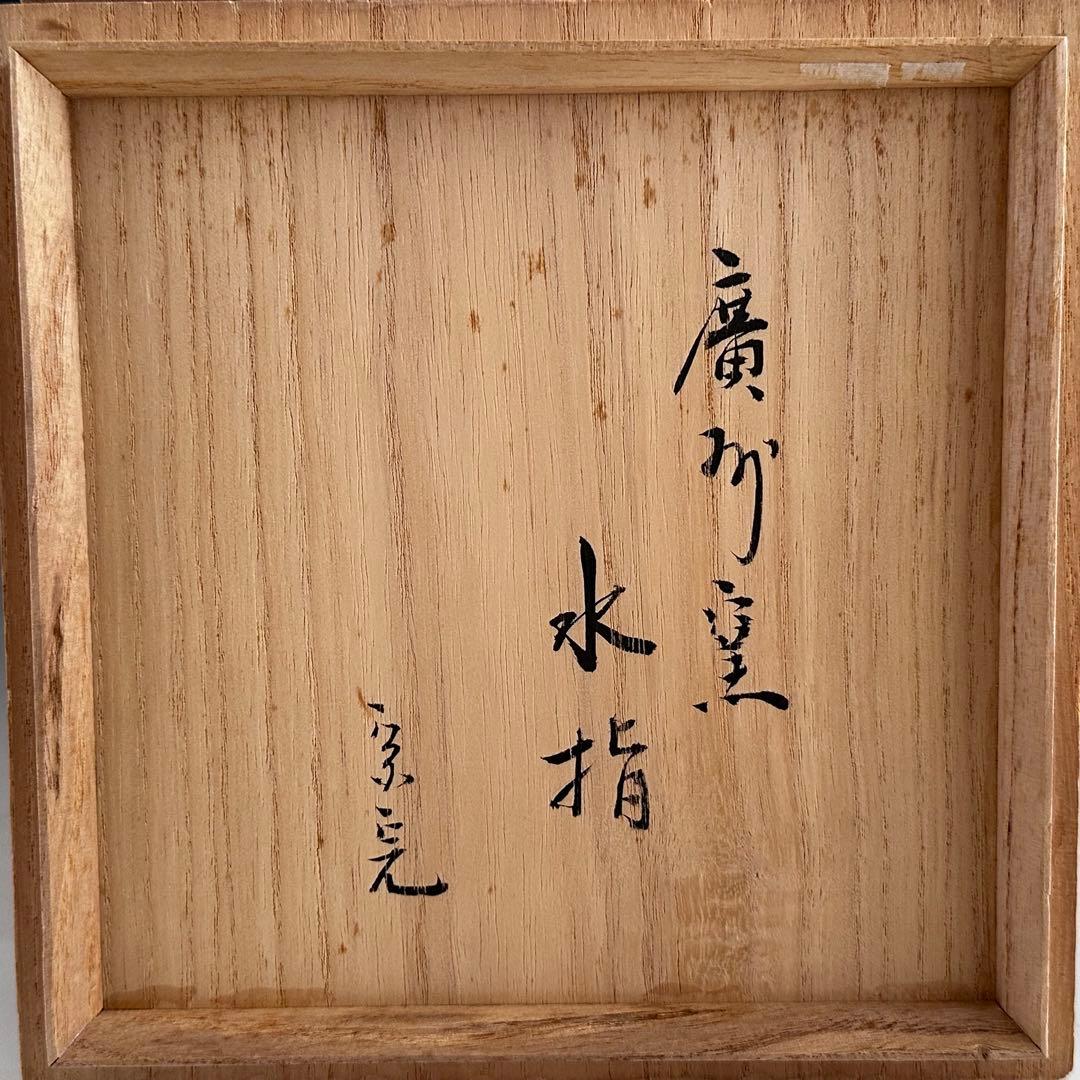 廣州窯
水指
宗完